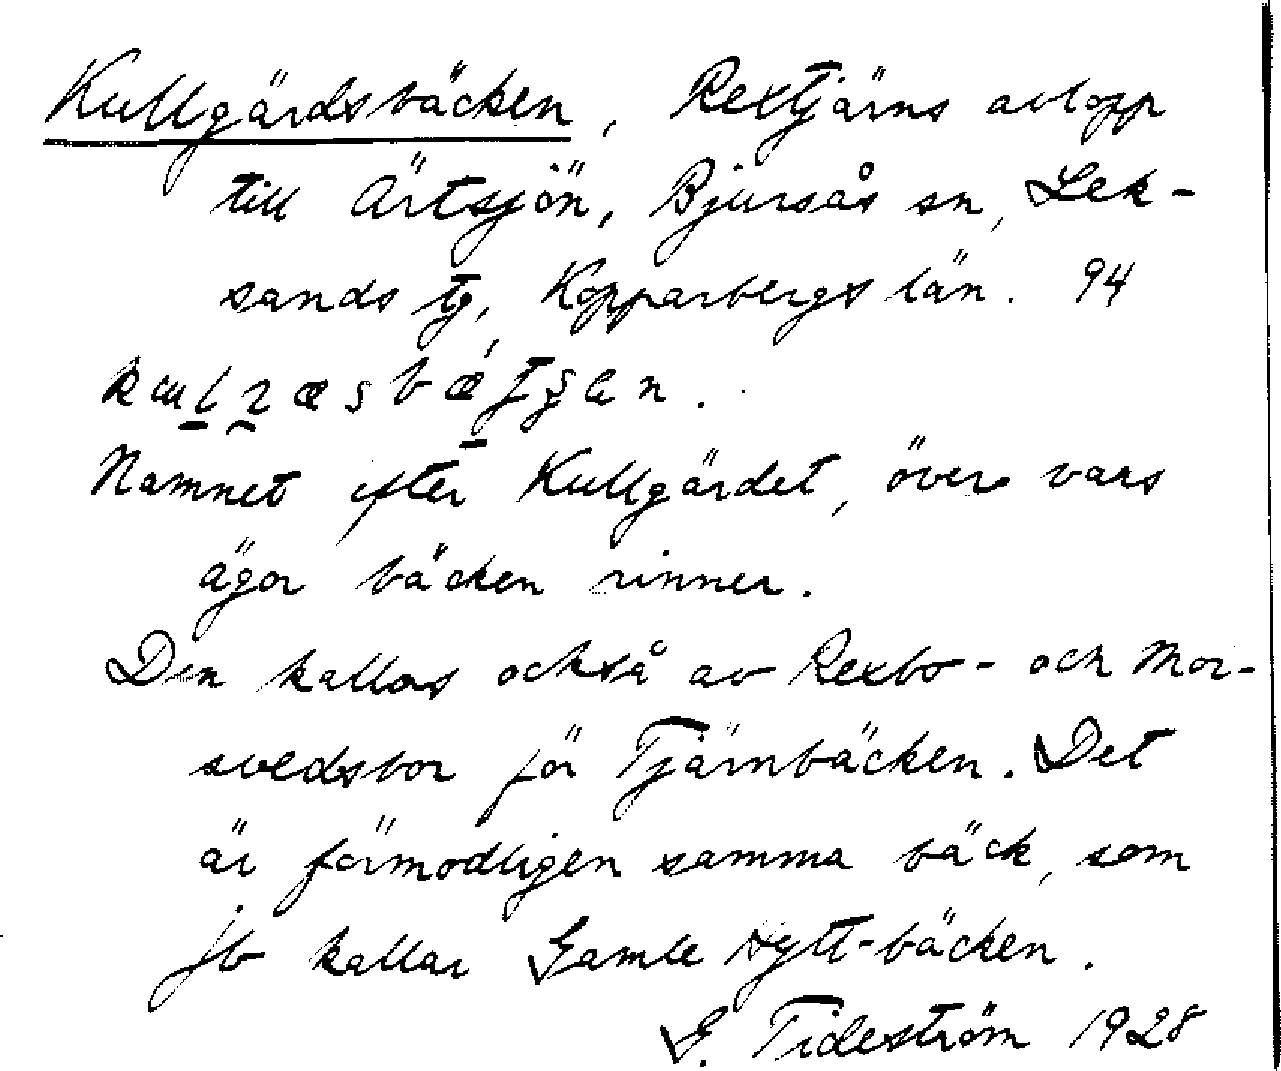 Kullgärdsbäcken, Rextjärns avlopp
till Ärtsjön, Bjursås sn, Lek-
sands tg, Kopparbergs län. 94
Namnet efter Kullgärdet, över vars
ägor bäcken rinner.
Den kallas också av Rexbo- och Mor-
svedsbor för Tjärnbäcken. Det
är förmodligen samma bäck, som
jb kallar Gamle Hytt-bäcken.
G. Tideström 1928